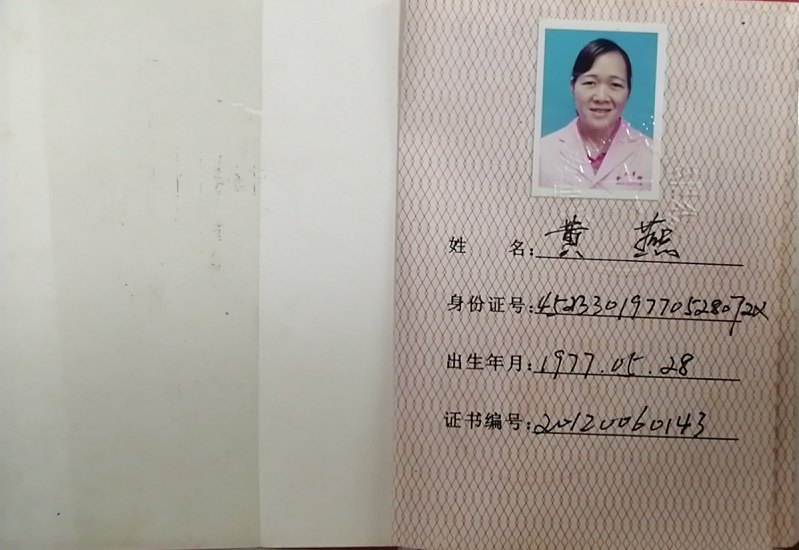 姓 名：黄 燕
身份证号：
出生年月：1977.05.28
证书编号：20120060143